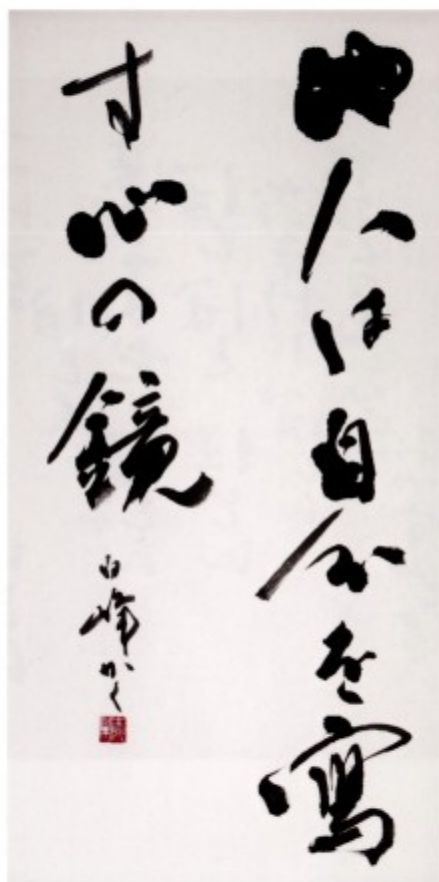 他人は自分を寫
す心の鏡
白峰かく